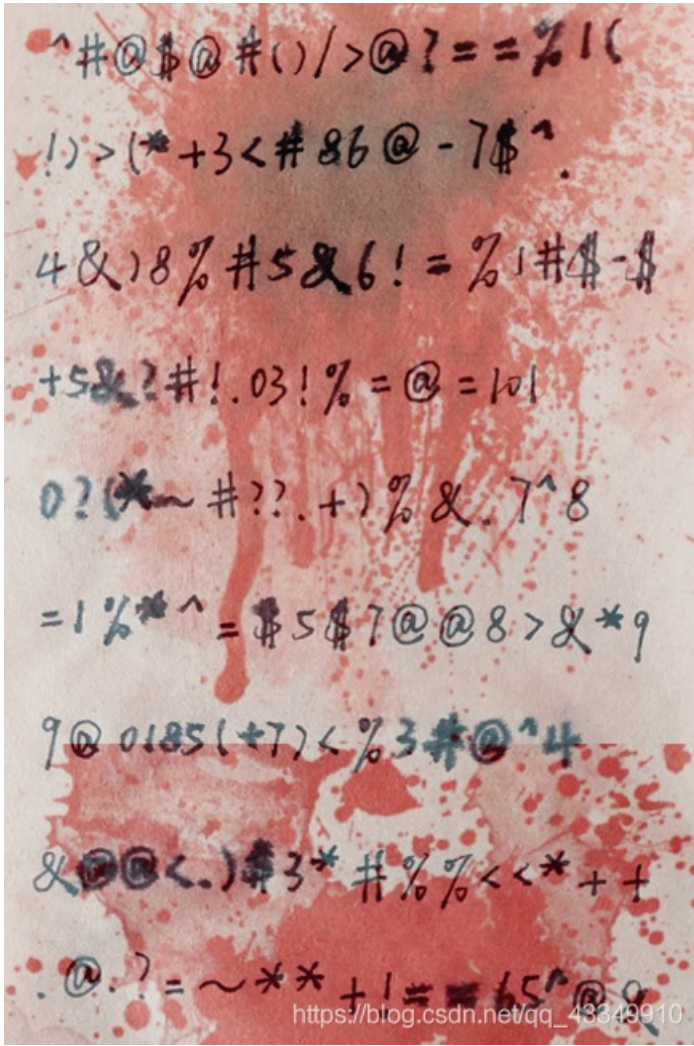 ^#@$@#()/>@?==%1(
!)>(*+3<#86@-7$^.
4&)8%#5&6!=%1#$-$
+5&?#!.03!%=@=101
0?(*~#??.+)%&.7^8
=1%*^=$5$7@@8>&*9
9@0185(+7)<%3#@^4
&@@<.)$3*#%%<<*++
.@.?=~**+!==65^@&
https://blog.csdn.net/qq_43349910